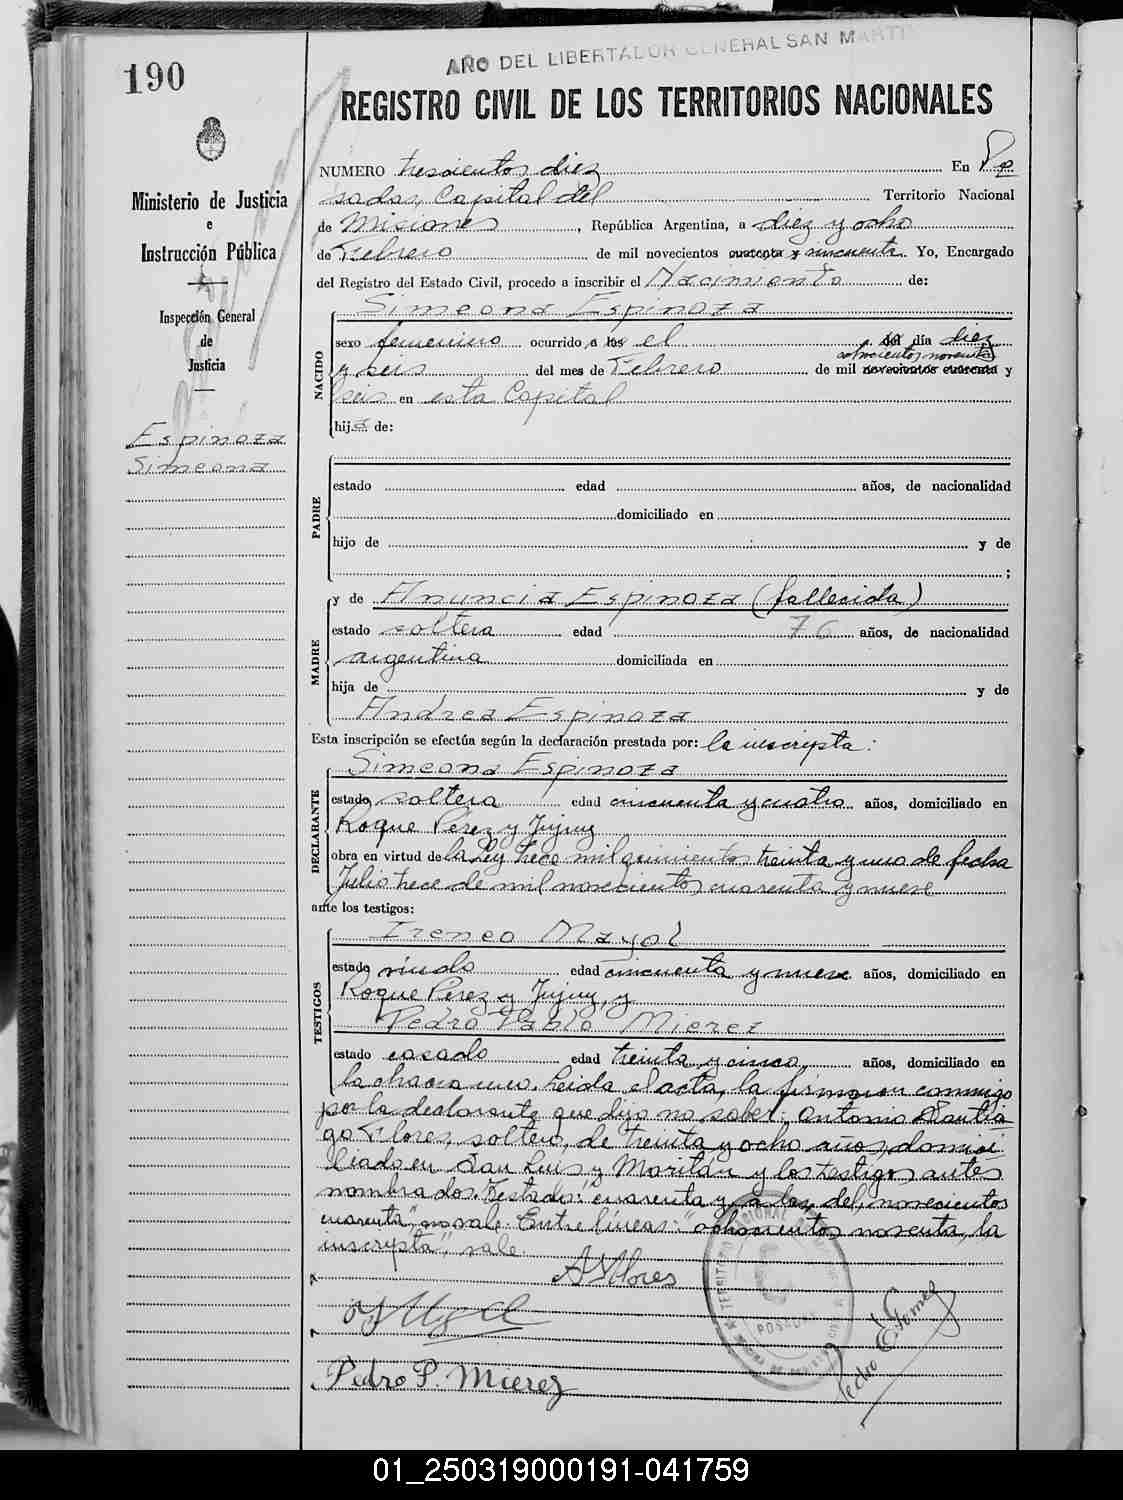 190
AÑO DEL LIBERTADOR GENERAL SAN MARTIN
REGISTRO CIVIL DE LOS TERRITORIOS NACIONALES
Ministerio de Justicia
e
Instrucción Pública
Inspección General
de
Justicia
Espinoza
Simeona
NUMERO trescientos diez En Po
sadas, Capital del Territorio Nacional
de Misiones, República Argentina, a diez y ocho
de Febrero de mil novecientos cuarenta y cincuenta. Yo, Encargado
del Registro del Estado Civil, procedo a inscribir el Nacimiento de:
Simeona Espinoza
NACIDO
sexo femenino ocurrido a las el del día diez
ochocientos noventa
y seis del mes de Febrero de mil novecientos cuarenta y
seis en esta Capital
hija de:
PADRE
estado edad años, de nacionalidad
domiciliado en
hijo de y de
;
MADRE
y de Anuncia Espinoza (fallecida)
estado soltera edad 76 años, de nacionalidad
argentina domiciliada en
hija de y de
Andrea Espinoza
Esta inscripción se efectúa según la declaración prestada por: la inscripta:
DECLARANTE
Simeona Espinoza
estado soltera edad cincuenta y cuatro años, domiciliado en
Roque Pérez y Jujuy
obra en virtud de la Ley trece mil quinientos treinta y uno de fecha
Julio trece de mil novecientos cuarenta y nueve
ante los testigos:
TESTIGOS
Ireneo Mayol
estado viudo edad cincuenta y nueve años, domiciliado en
Roque Pérez y Jujuy, y
Pedro Pablo Mierez
estado casado edad treinta y cinco años, domiciliado en
la chacra uno. Leida el acta, la firmaron conmigo
por la declarante que dijo no saber: Antonio Santia
go Flores, soltero, de treinta y ocho años, domici
liado en San Luis y Maritan y los testigos antes
nombrados. Testado: "cuarenta y, a las, del, novecientos
cuarenta", no vale. Entre líneas: "ochocientos noventa, la
inscripta", vale.
ASFlores
Pedro P. Mierez
Pedro E. Gomez
POSADAS
01_250319000191-041759